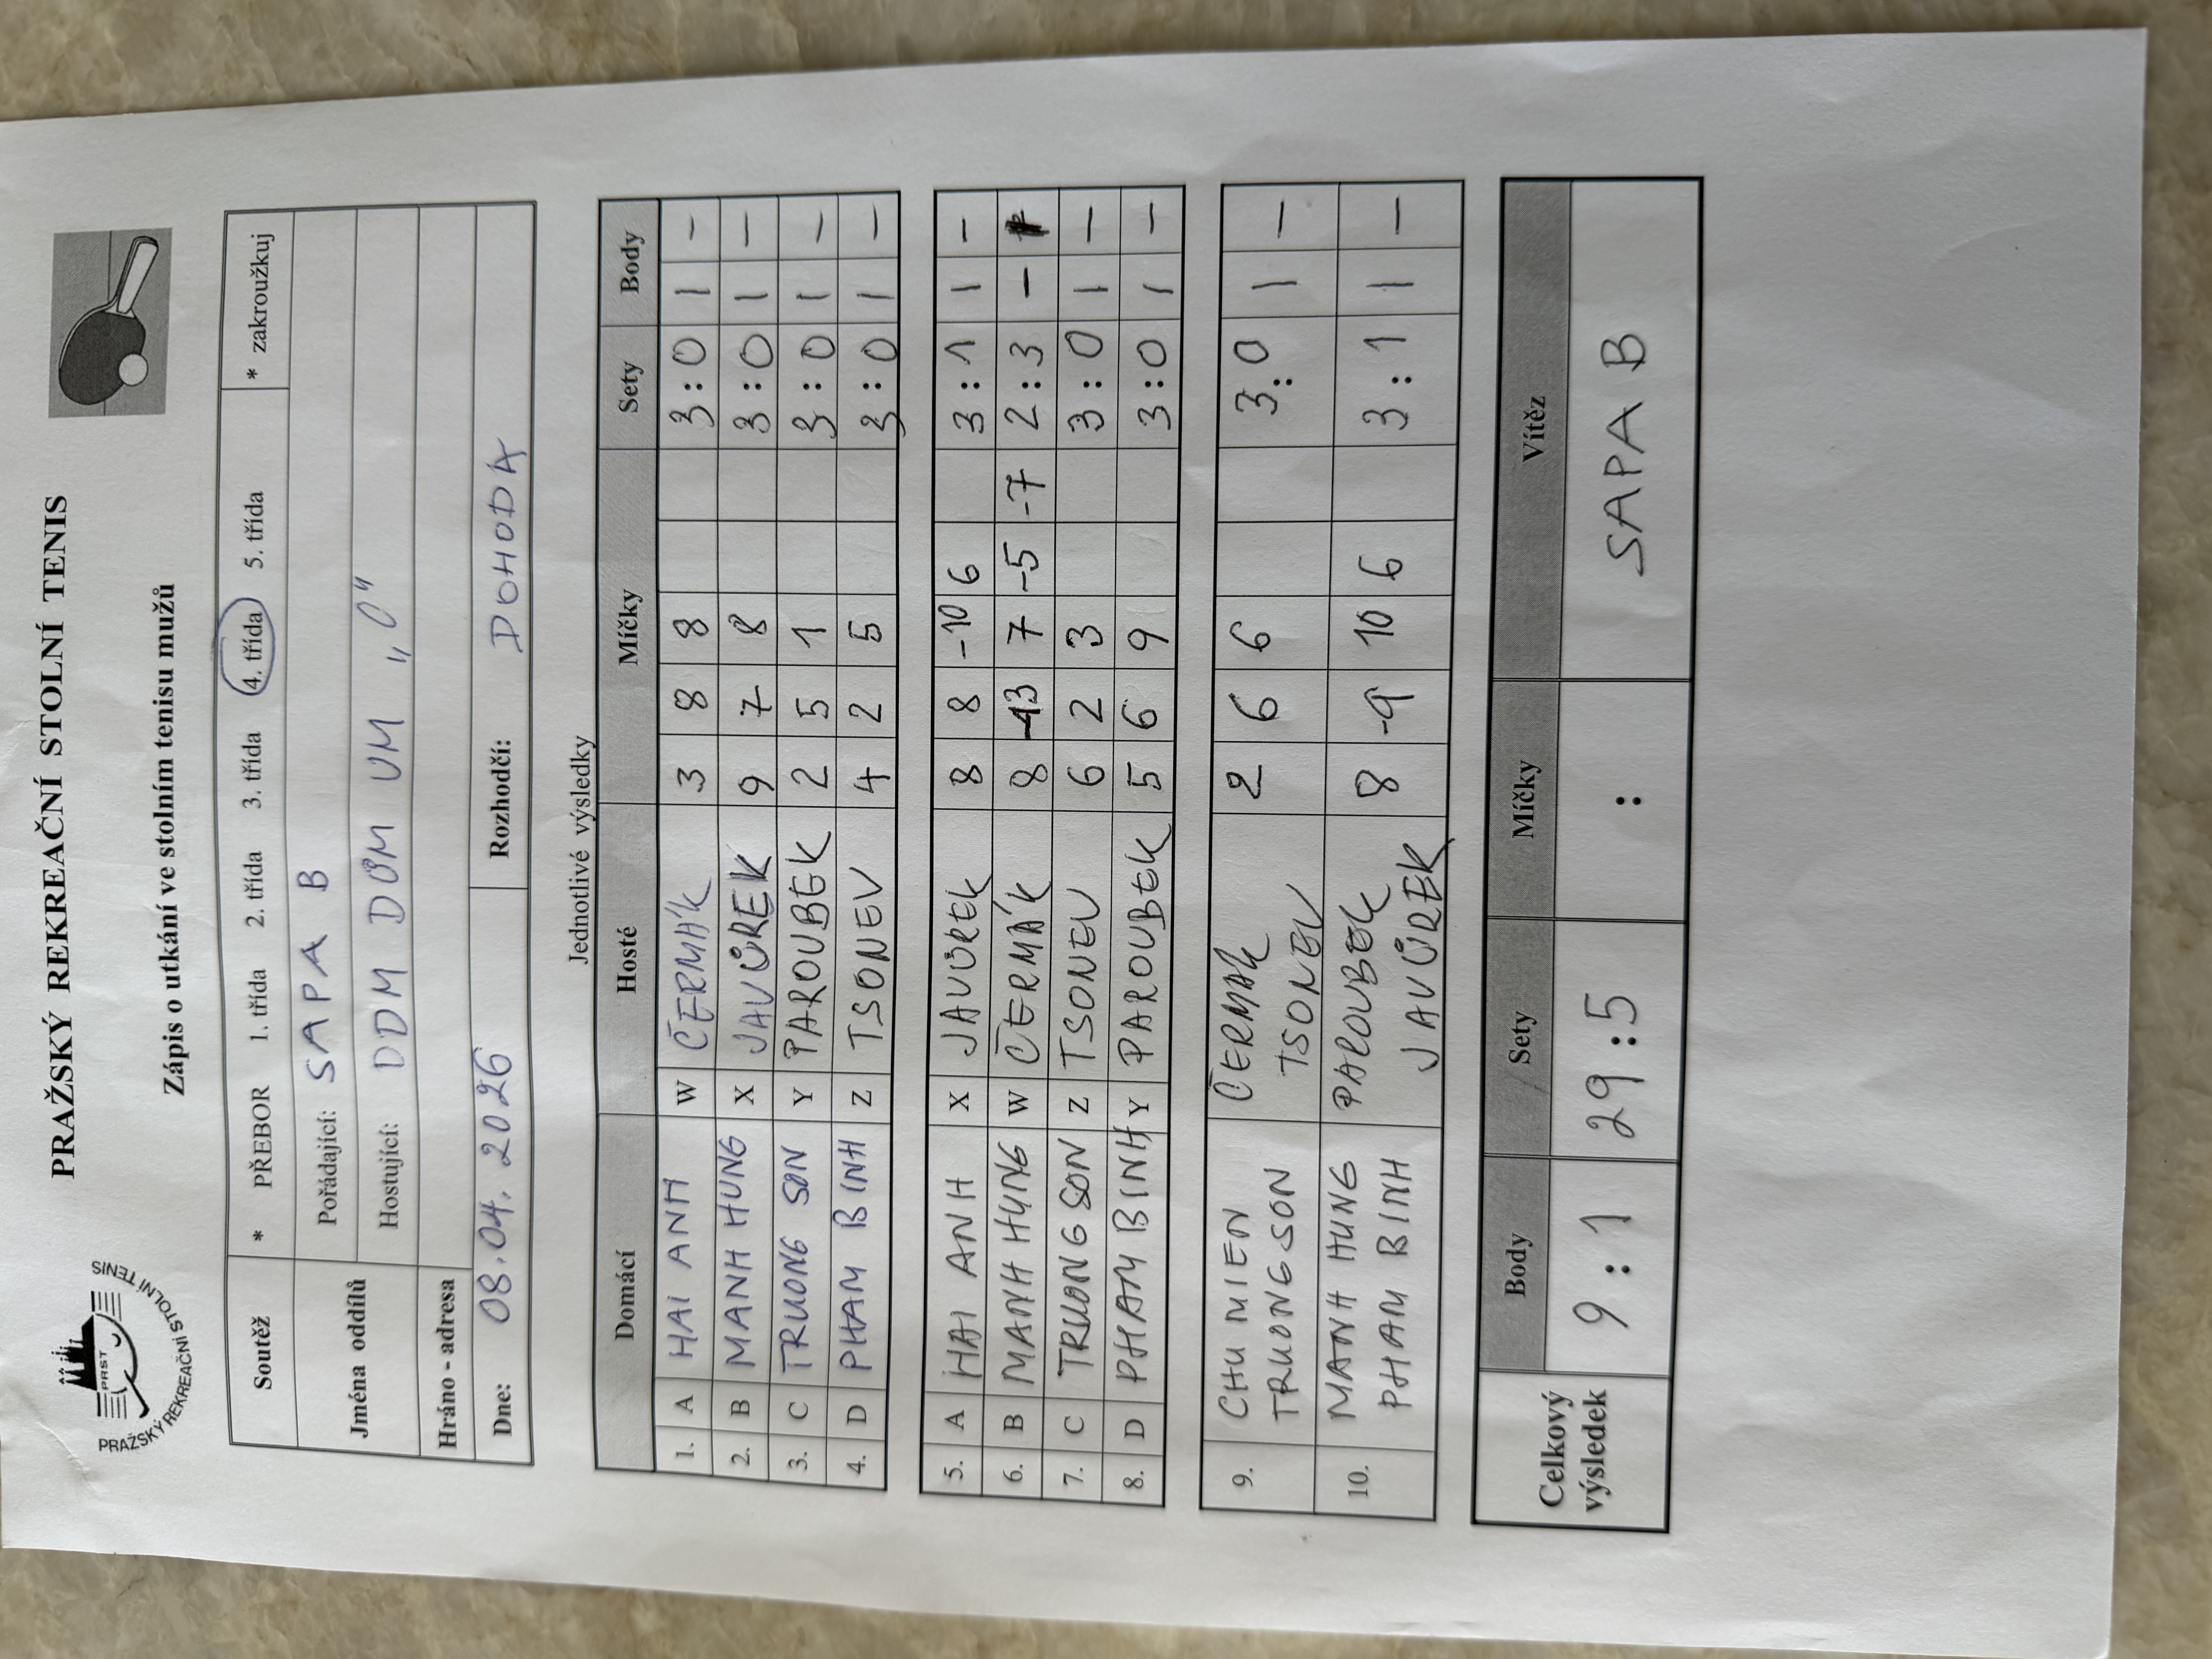 PRAŽSKÝ REKREAČNÍ STOLNÍ TENIS
PRST
PRAŽSKÝ REKREAČNÍ STOLNÍ TENIS
Zápis o utkání ve stolním tenisu mužů
Soutěž * PŘEBOR 1. třída 2. třída 3. třída 4. třída 5. třída * zakroužkuj
Jména oddílů Pořádající: SAPA B
Hostující: DDM DŮM UM „O"
Hráno - adresa
Dne: 08.04.2026 Rozhodčí: DOHODA
Jednotlivé výsledky
Domácí Hosté Míčky Sety Body
1. A HAI ANH W ČERMÁK 3 8 8 3:0 1 –
2. B MANH HUNG X JAVŮREK 9 7 8 3:0 1 –
3. C TRUONG SON Y PAROUBEK 2 5 1 3:0 1 –
4. D PHAM BINH Z TSONEV 4 2 5 3:0 1 –
5. A HAI ANH X JAVŮREK 8 8 -10 6 3:1 1 –
6. B MANH HUNG W ČERMÁK 8 -13 7 -5 -7 2:3 –
7. C TRUONG SON Z TSONEV 6 2 3 3:0 1 –
8. D PHAM BINH Y PAROUBEK 5 6 9 3:0 1 –
9. CHU MIEN ČERMÁK 2 6 6 3:0 1 –
TRUONG SON TSONEV
10. MANH HUNG PAROUBEK 8 -9 10 6 3:1 1 –
PHAM BINH JAVŮREK
Celkový výsledek Body Sety Míčky Vítěz
9:1 29:5 : SAPA B